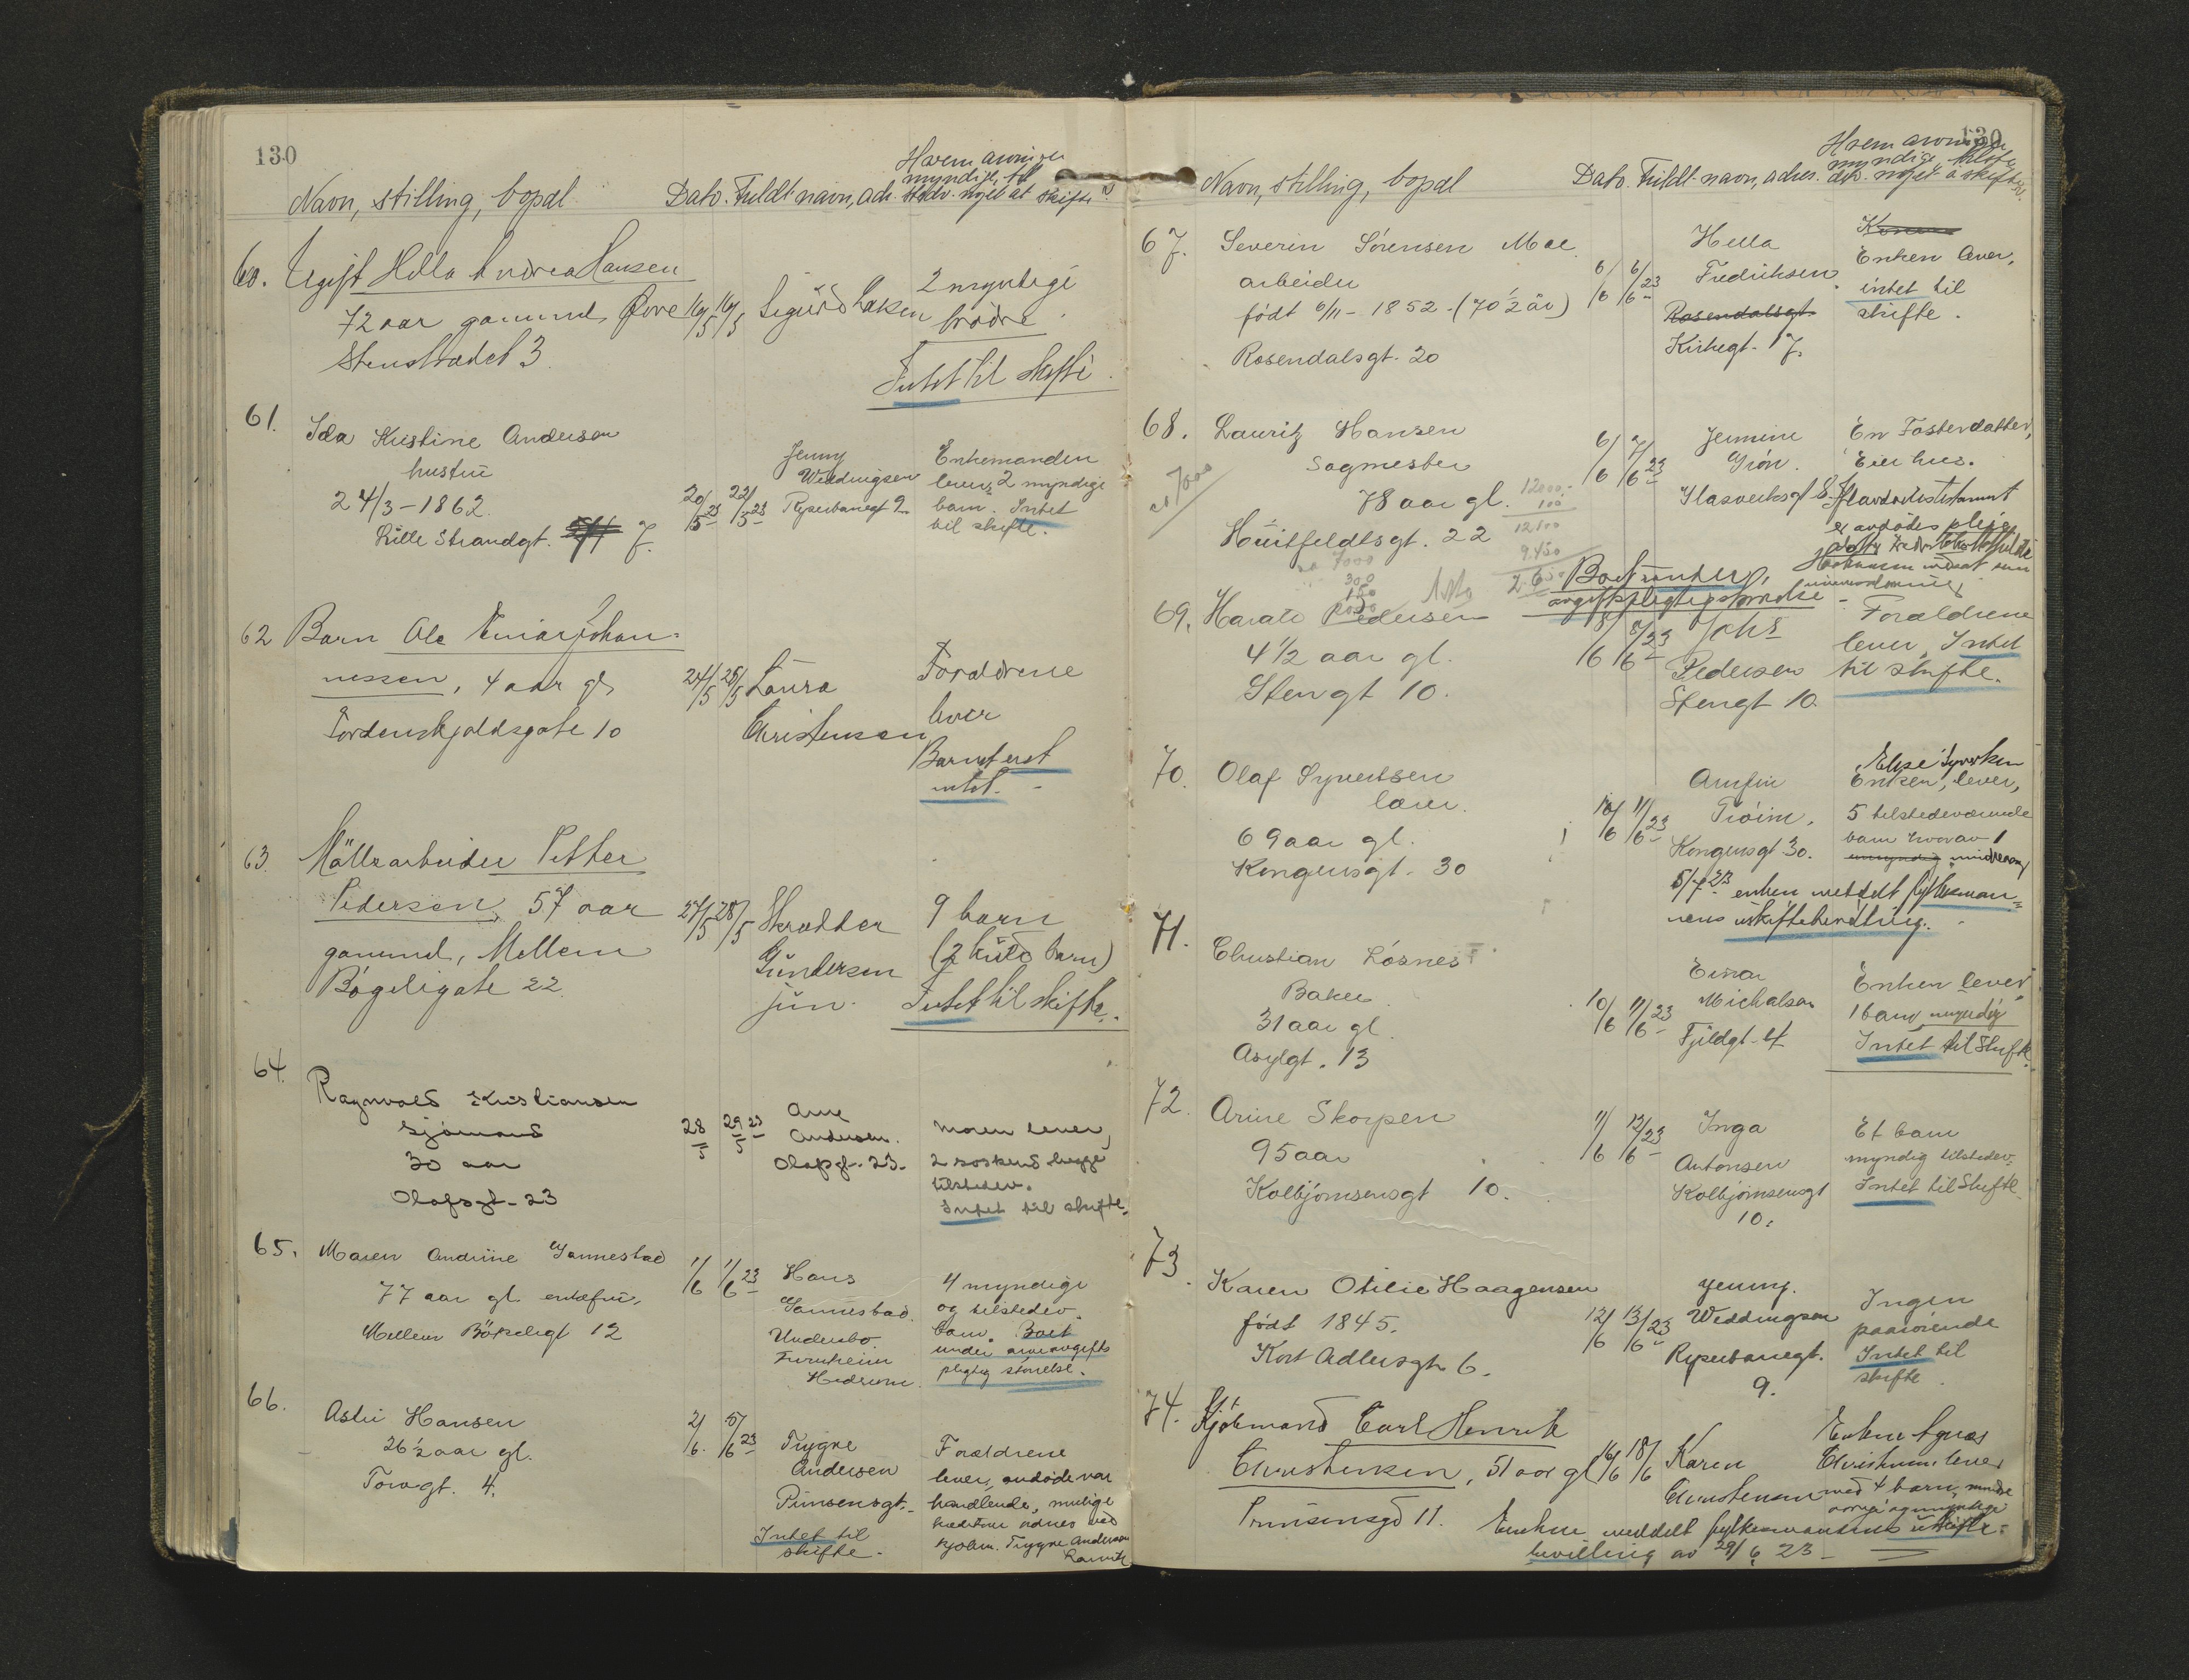 130
Navn, stilling, bopæl
Dato. Fuldt navn, adr.
Hvem arvinger
myndige, til
stedv. noget at skifte
60. Ugift Hella Andrea Hansen
72 aar gammel, Øvre
Stenstrædet 3.
16/5 16/5
Sigurd Laksen
2 myndige
brödre.
Intet til skifte.
61.
Ida Kristine Andersen
hustru
24/3-1862.
Lille Strandgt. 7.
20/5 23 22/5 23
Jenny
Weddingsen
Ryseibanegt 9
Enkemanden
lever, 2 myndige
barn. Intet
til skifte.
62 Barn Ole Einar Johan-
nessen, 4 aar gl.
Tordenskjoldsgate 10
24/5 25/5
Laura
Christensen
Forældrene
lever
Barnet eiet
intet.
63. Möllearbeider Petter
Pedersen, 57 aar
gammel, Mellem
Bögeligate 22.
27/5 28/5
Skrædder
Gundersen
jun.
9 barn
(2 kuld barn)
Intet til skifte.
64.
Ragnvald Kristiansen
Sjömand
30 aar
Olafsgt. 23
28/5 29/5 23
Arne
Andersen.
Olafsgt. 23.
Moren lever,
2 søskend begge
tilstedev.
Intet til skifte.
65. Maren Andrine Gannestad
77 aar gl. enkefru,
Mellem Bökeligt 12
1/6 1/6 23
Hans
Gannestad.
Undersbo
Furuheim
Hedrum.
4 myndige
og tilstedev.
barn. Boet
under arveavgifts
pligtig størrelse.
66.
Astri Hansen
26½ aar gl.
Torvgt. 4.
2/6. 5/6 23
Trygve
Andersen
Prinsensgt.
Intet til
skifte.
Forældrene
lever, avdöde var
handlende, mulige
kreditorer ordnes ved
kjøbm. Trygve Andersen
Larvik
130
Navn, stilling, bopæl
Dato. Fuldt navn, adres.
Hvem arvinger
myndige, tilste
dev. noget å skifte
67. Severin Sørensen Moe
arbeider
født 6/11-1852-(70½ år)
Rosendalsgt. 20
6/6 6/6 23
Hella
Fredriksen.
Rosendalsgt.
Kirkegt. 7.
Konen
Enken lever,
intet til
skifte.
68. Lauritz Hansen
Sagmester
78 aar gl.
Huitfeldtsgt. 22
ca 7000
12000.-
100
12100
9450
2650
ca 7000
300
150
2000
6/6 7/6 23
Jermine
Grön.
Glasverksgt 8.
En Fosterdatter,
Eier hus.
Boet under
avgiftspligtig størrelse
69. Harald Pedersen
4½ aar gl.
Stengt 10.
8/6 8/6 23
Johs
Pedersen
Stengt 10.
Forældrene
lever, Intet
til skifte.
70. Olaf Syvertsen
lærer.
69 aar gl.
Kongensgt. 30
10/6 11/6 23
Arnfin
Trøim.
Kongensgt. 30.
Elise Syvertsen
Enken, lever,
5 tilstedeværende
barn hvorav 1
umyndig mindreaarig
5/7 23 enken meddelt fylkesman-
nens uskiftebevilling.
71.
Christian Løsnes
Baker.
31 aar gl.
Asylgt. 13
10/6 11/6 23
Einar
Michalsen
Fjeldgt. 4
Enken lever
1 barn, myndig
Intet til Skifte.
72. Arine Skorpen
95 aar
Kolbjørnsensgt 10.
11/6 12/6 23
Inga
Antonsen
Kolbjørnsensgt
10.
Et barn
myndig tilstedev.
Intet til Skifte.
73.
Karen Otilie Haagensen
født 1845.
Kort Adlersgt. 6.
12/6 13/6 23
Jenny.
Weddingsen
Ryseibanegt.
9.
Ingen
paarørende
Intet til
skifte.
74. Kjøbmand Carl Henrik
Christensen, 51 aar gl
Prinsensgd 11.
16/6 18/6
Karen
Christensen
Enken Agnes
Christensen lever
med 4 barn, mindre
aarige og myndige
Enken meddelt fylkesmandens uskifte-
bevilling av 29/6 23-